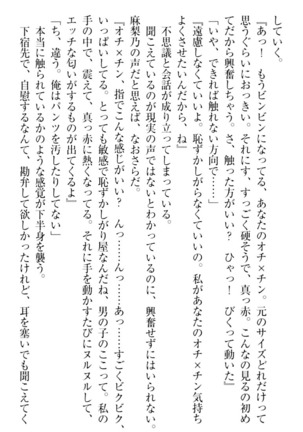 していく。
『あっ！　もうビンビンになってる、あなたのオチ×チン。元のサイズどれだけって
思うぐらいにおっきい。それに、すっごく硬そうで、真っ赤。こんなの見るの初め
てだから興奮しちゃう。さ、触った方がいい？　ひゃっ！　びくって動いた』
「いや、できれば触れない方向で……」
『遠慮しなくていいよ。恥ずかしがらなくていいの。私があなたのオチ×チン気持ち
よくさせたいんだから、ね』
不思議と会話が成り立ってしまっている。
聞こえているのが現実の声ではないとわかっているのに、興奮せずにはいられない。
麻梨乃の声だと思えば、なおさらだ。
『オチ×チン、指でこんな感じがいい？　んっ……んっ……あっ……すごくビクビク、
いっぱいしてる。とっても敏感で恥ずかしがり屋なんだね、男の子のここって。私の
手の中で、震えて、真っ赤に熱くなってる。それに手を動かすたびにヌルヌルして、
エッチな匂いがするものが出てくるよ』
「ち、違う。俺はパンツを汚したりしてない」
本当に触られているかのような感覚が下半身を襲う。
下宿先で、自慰するなんて、勘弁して欲しかったけれど、耳を塞いでも聞こえてく